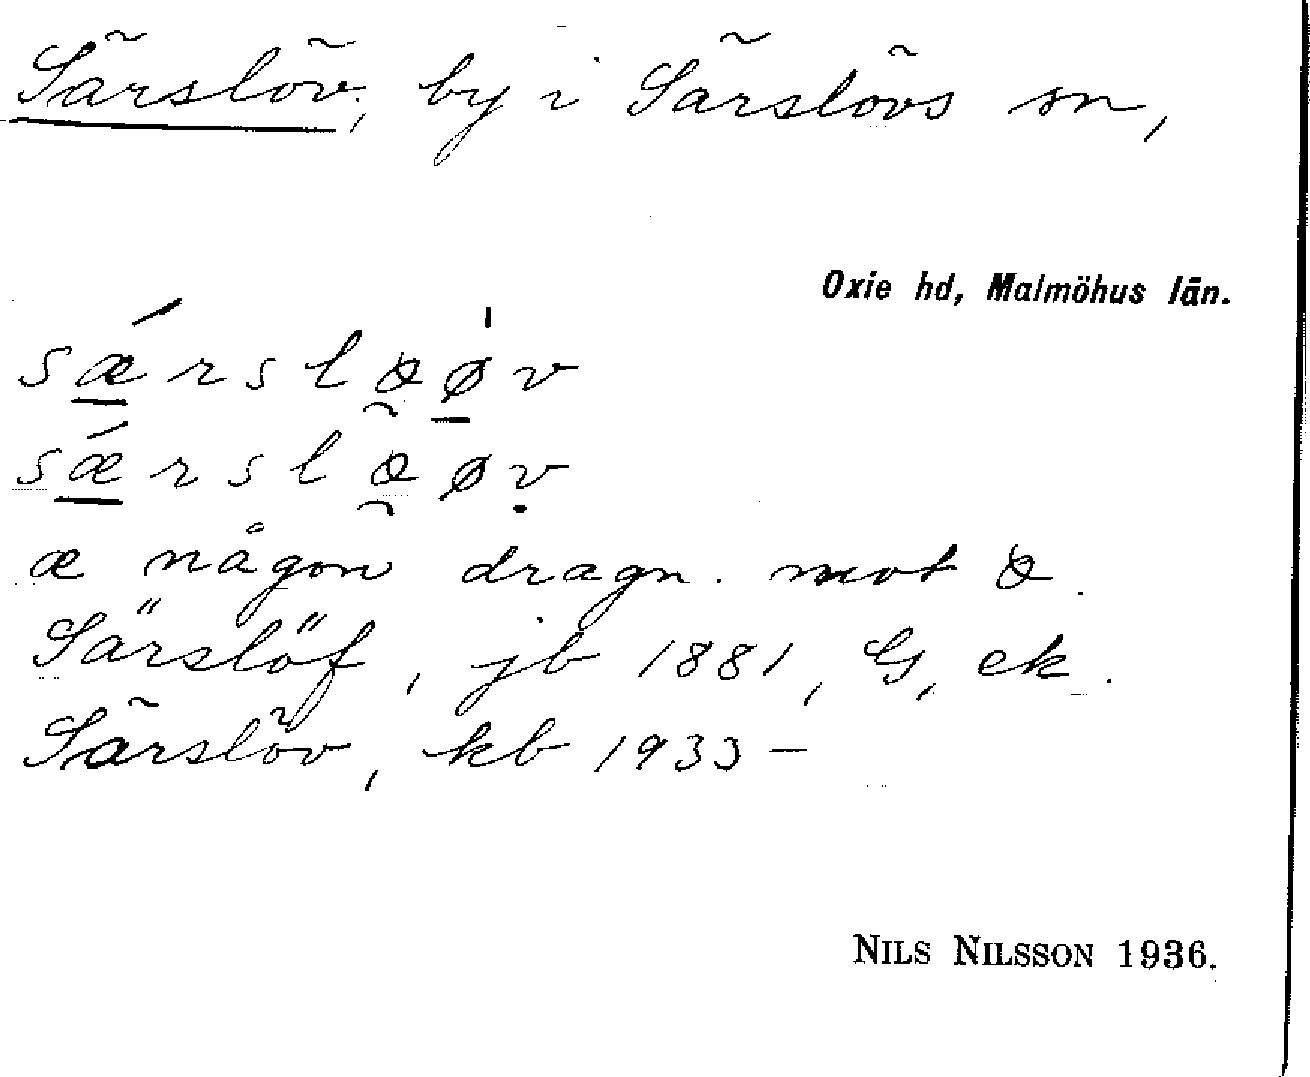 Särslöv, by i Särslövs sn,
Oxie hd, Malmöhus län.
æ någon dragn. mot
Särslöf, jb 1881, G, ek.
Särslöv, kb 1933 –
NILS NILSSON 1936.